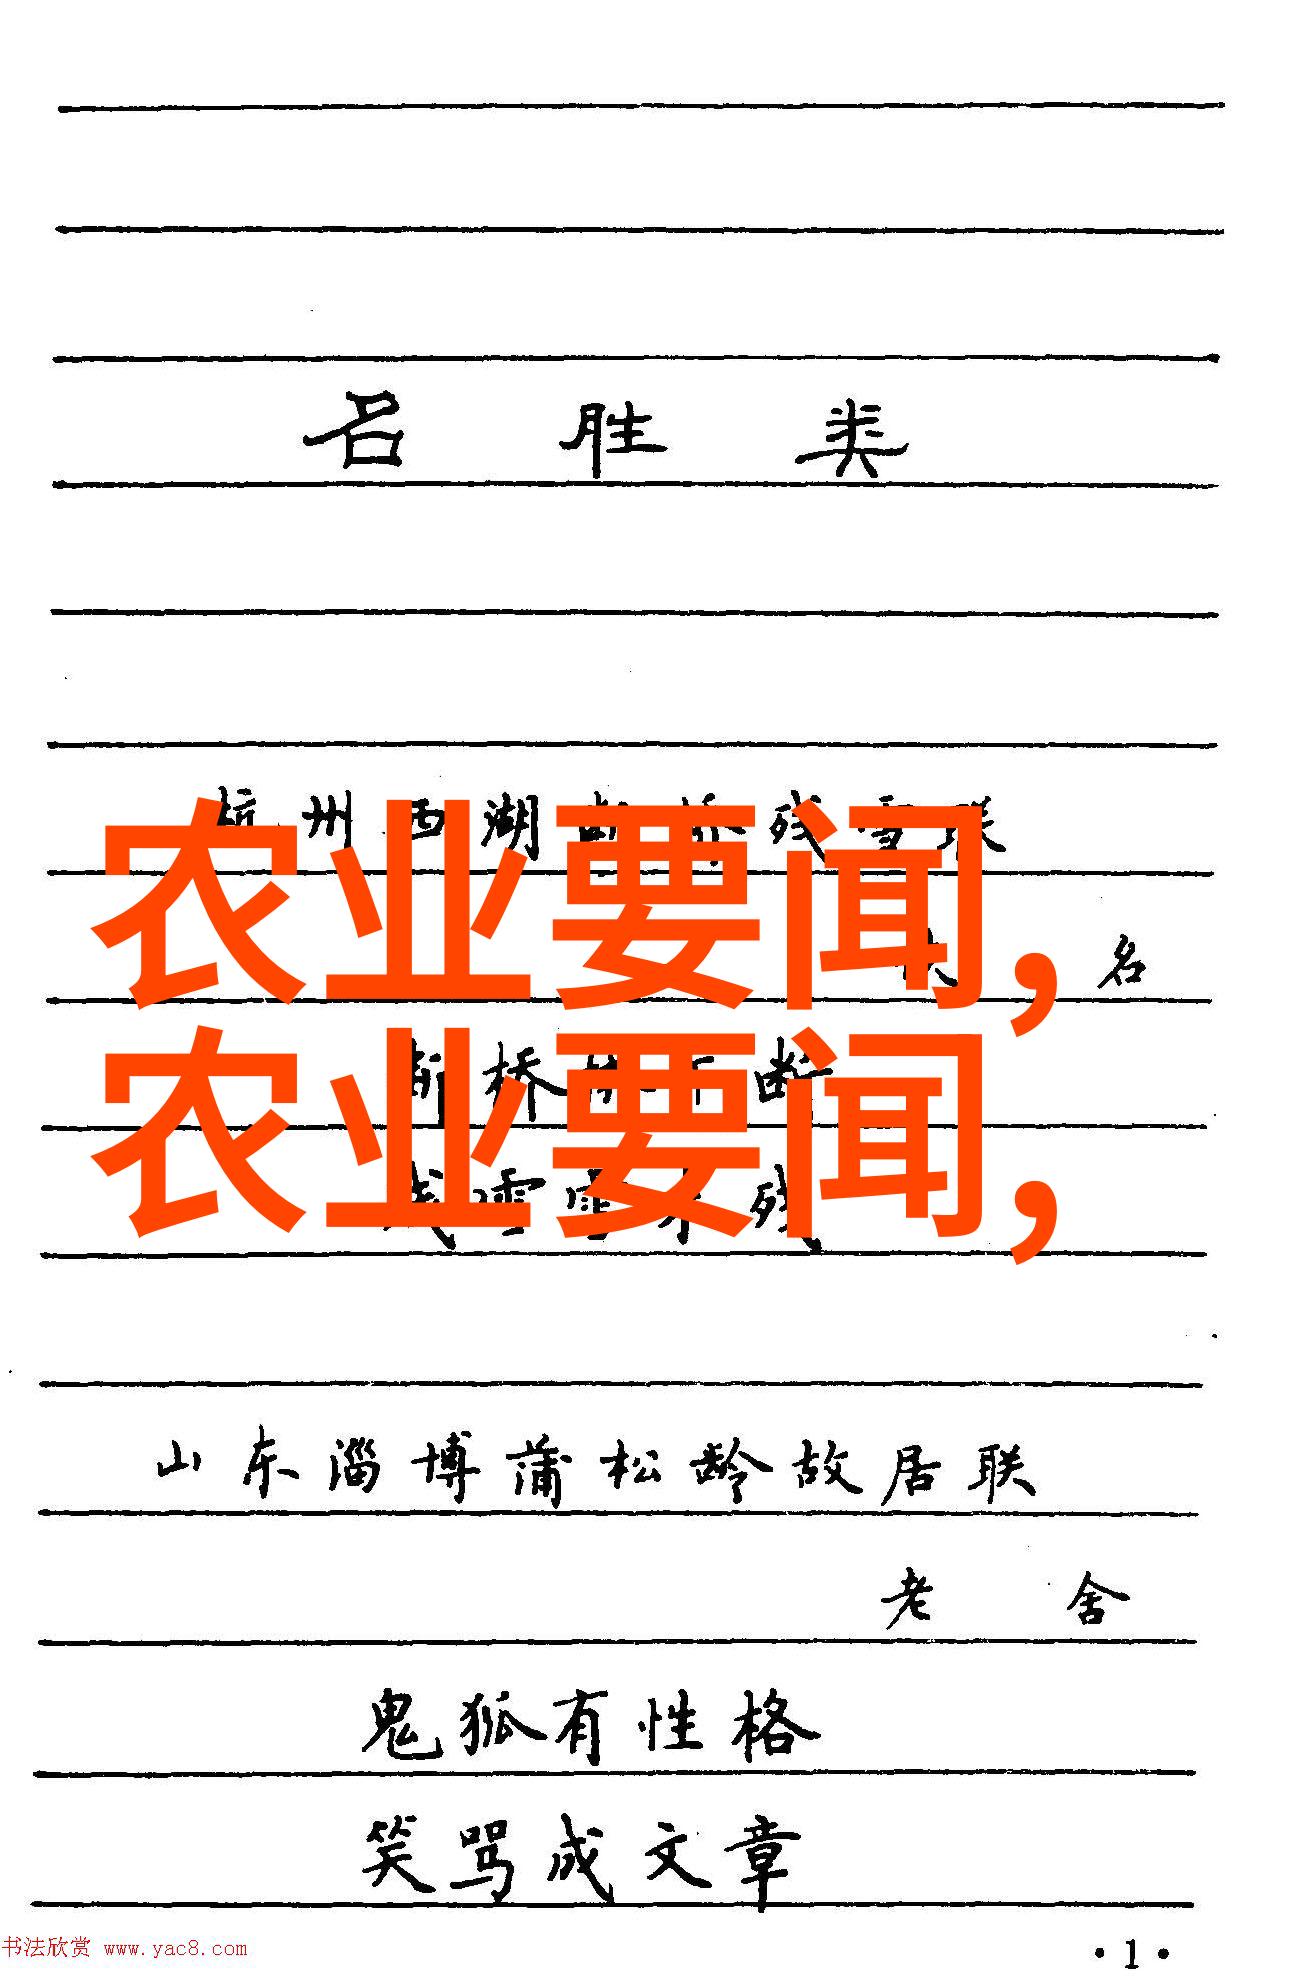 名胜类
杭州西湖断桥残雪联
农业要闻,
名
断桥桥不断
农业要闻,
残雪雪未残
山东淄博蒲松龄故居联
老舍
鬼狐有性格
笑骂成文章
书法欣赏 www.yac8.com
·1·